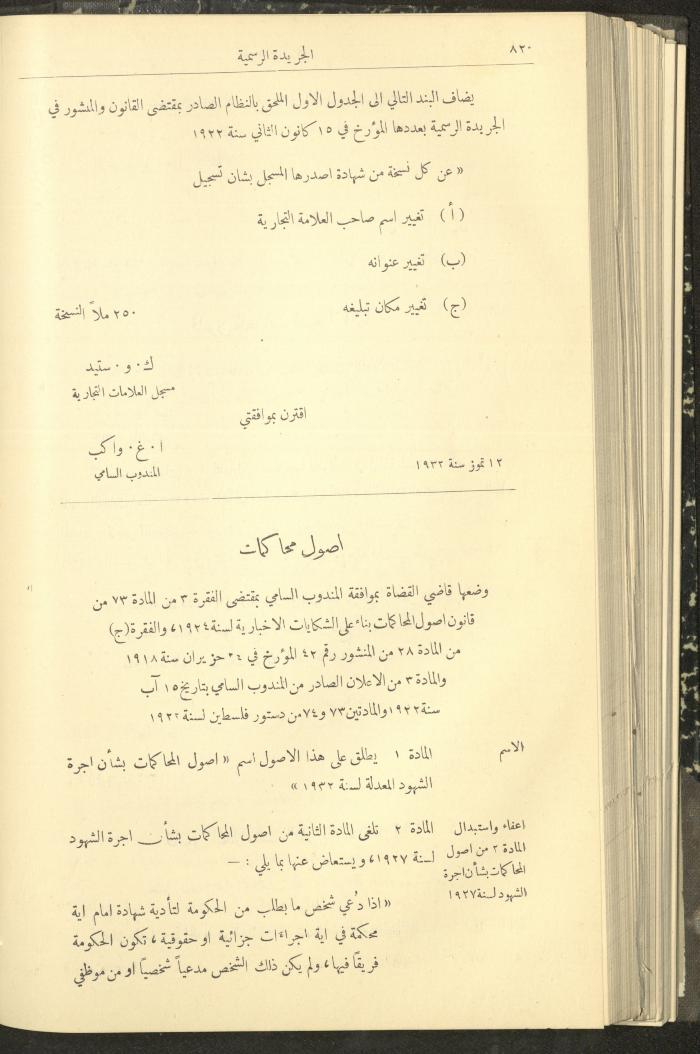 ٨٢٠
الجريدة الرسمية
يضاف البند التالي الى الجدول الاول الملحق بالنظام الصادر بمقتضى القانون والمنشور في
الجريدة الرسمية بعددها المؤرخ في ١٥ كانون الثاني سنة ١٩٢٢
« عن كل نسخة من شهادة اصدرها المسجل بشان تسجيل
(أ) تغيير اسم صاحب العلامة التجارية
(ب) تغيير عنوانه
(ج) تغيير مكان تبليغه ٢٥٠ ملاً النسخة
ك٠ و٠ ستيد
مسجل العلامات التجارية
اقترن بموافقتي
ا٠ غ٠ واكب
المندوب السامي
١٢ تموز سنة ١٩٣٢
اصول محاكمات
وضعها قاضي القضاة بموافقة المندوب السامي بمقتضى الفقرة ٣ من المادة ٧٣ من
قانون اصول المحاكمات بناء على الشكايات الاخبارية لسنة ١٩٢٤، والفقرة (ج)
من المادة ٢٨ من المنشور رقم ٤٢ المؤرخ في ٢٤ حزيران سنة ١٩١٨
والمادة ٣ من الاعلان الصادر من المندوب السامي بتاريخ ١٥ آب
سنة ١٩٢٢ والمادتين ٧٣ و٧٤ من دستور فلسطين لسنة ١٩٢٢
الاسم
المادة ١ يطلق على هذا الاصول اسم « اصول المحاكمات بشأن اجرة
الشهود المعدلة لسنة ١٩٣٢ »
اعفاء واستبدال
المادة ٢ من اصول
المحاكمات بشأن اجرة
الشهود لسنة ١٩٢٧
المادة ٢ تلغى المادة الثانية من اصول المحاكمات بشأن اجرة الشهود
لسنة ١٩٢٧، ويستعاض عنها بما يلي : —
« اذا دُعي شخص ما بطلب من الحكومة لتأدية شهادة امام اية
محكمة في اية اجراءات جزائية او حقوقية، تكون الحكومة
فريقًا فيها، ولم يكن ذلك الشخص مدعياً شخصيًا او من موظفي